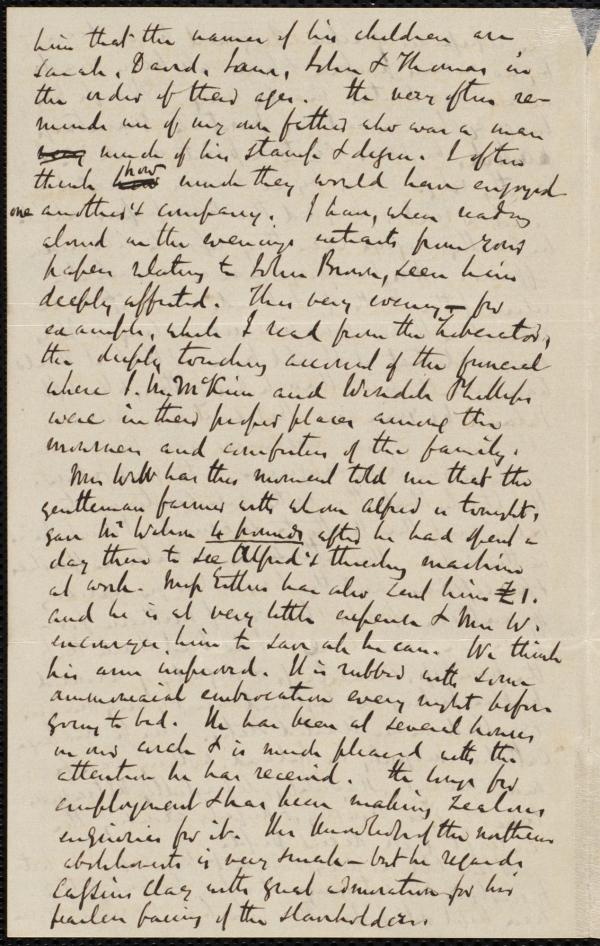 him that the names of his children are
Sarah, David, Jane, John & Thomas in
the order of their ages. He very often re-
minds me of my own father who was a man
very much of his stamp & degree. I often
think how much they would have enjoyed
one another's company. I have, when reading
aloud in the evenings extracts from your
papers relating to John Brown, seen him
deeply affected. This very evening – for
example, while I read from the Liberator,
the deeply touching account of the funeral
where J. M. McKim and Wendell Phillips
were in their proper places among the
mourners and comforters of the family.
Mrs W has this moment told me that the
gentleman farmer with whom Alfred is tonight,
gave Mr Wilson 4 pounds after he had spent a
day there to see Alfred's threshing machine
at work. Miss Esther has also sent him £1.
and he is at very little expense & Mrs W.
encourages him to save all he can. We think
his arm improved. It is rubbed with some
ammoniacal embrocation every night before
going to bed. He has been at several houses
in our circle & is much pleased with the
attention he has received. He longs for
employment & has been making zealous
enquiries for it. His knowledge of the northern
abolitionists is very small – but he regards
Cassius Clay with great admiration for his
fearless facing of the slaveholders.